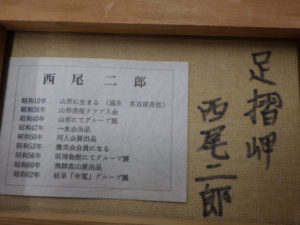 西尾二郎
昭和10年 山形に生まる (現在 名古屋在住)
昭和38年 山形美術クラブ入会
昭和40年 山形にてグループ展
昭和47年 一水会出品
昭和50年 同人会展出品
昭和53年 会員になる
昭和56年 県博物館にてグループ展
昭和60年 飛騨高山展出品
昭和62年 岐阜「中電」グループ展
足摺岬
西尾二郎